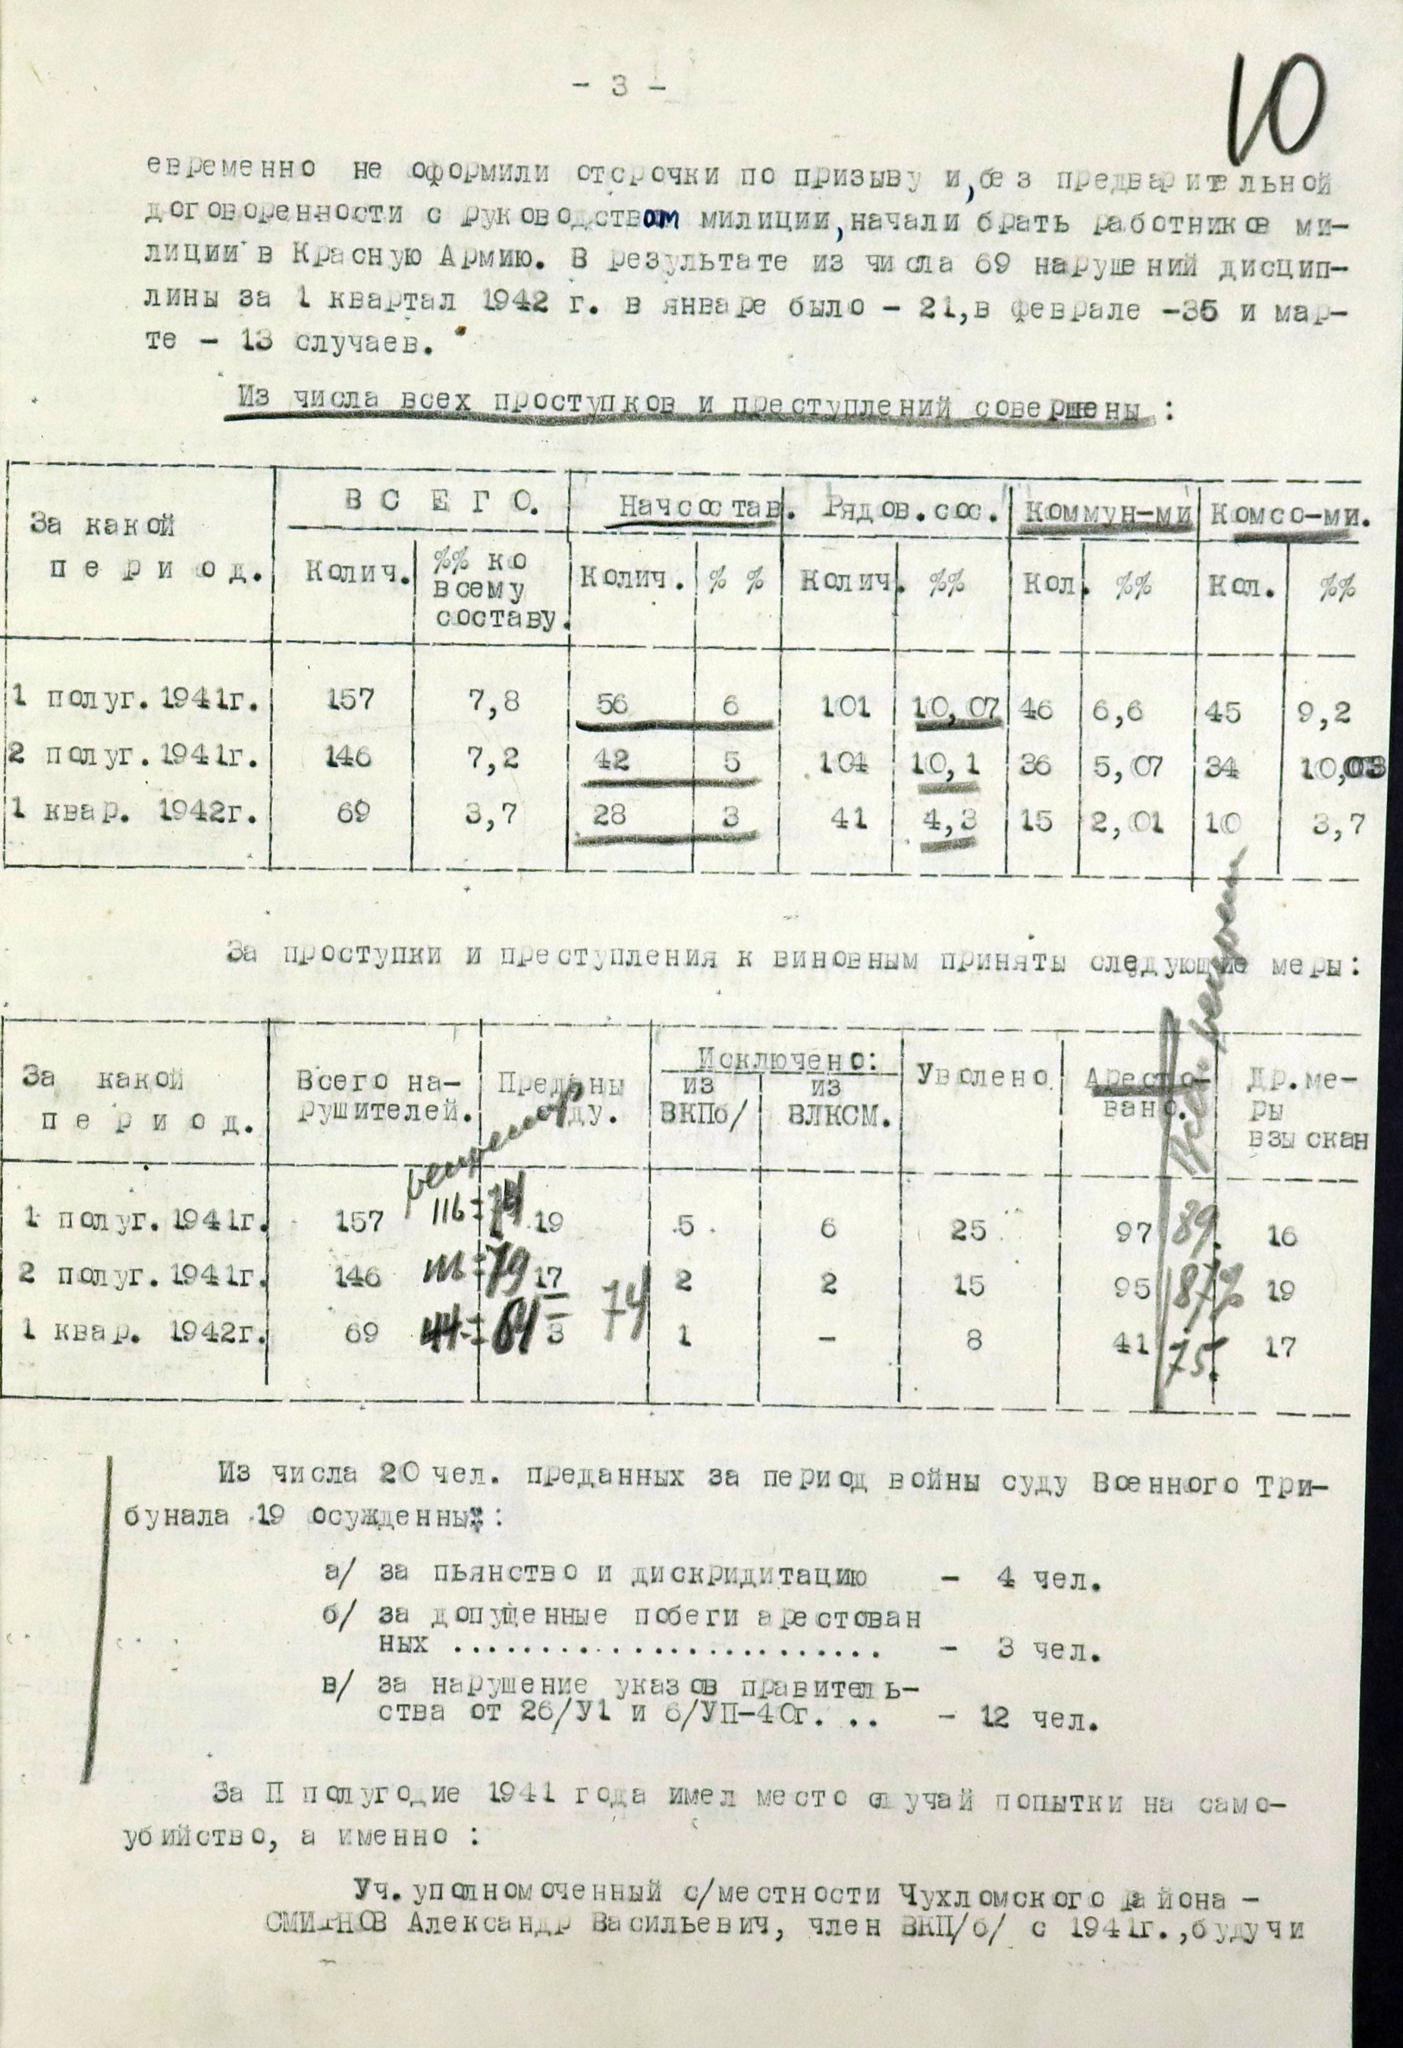 - 3 -
10
евременно не оформили отсрочки по призыву и, без предварительной
договоренности с руководством милиции, начали брать работников ми-
лиции в Красную Армию. В результате из числа 69 нарушений дисцип-
лины за 1 квартал 1942 г. в январе было - 21, в феврале -35 и мар-
те - 13 случаев.
Из числа всех проступков и преступлений совершены :
За какой период. В С Е Г О. Начсостав. Рядов.сос. Коммун-ми Комсо-ми.
Колич. %% ко всему составу. Колич. % % Колич. %% Кол. %% Кол. %%
1 полуг. 1941г. 157 7,8 56 6 101 10,07 46 6,6 45 9,2
2 полуг. 1941г. 146 7,2 42 5 104 10,1 36 5,07 34 10,03
1 квар. 1942г. 69 3,7 28 3 41 4,3 15 2,01 10 3,7
За проступки и преступления к виновным приняты следующие меры:
За какой период. Всего на-рушителей. Преданы ду. Исключено: Уволено Аресто-вано. Др.ме-ры взыскан
из ВКПб/ из ВЛКСМ.
1 полуг. 1941г. 157 116 = 74 19 5 6 25 97 89. 16
2 полуг. 1941г. 146 111 = 79 17 2 2 15 95 87% 19
1 квар. 1942г. 69 44 = 64 3 74 1 - 8 41 75. 17
Из числа 20 чел. преданных за период войны суду Военного Три-
бунала 19 осужденных:
а/ за пьянство и дискридитацию - 4 чел.
б/ за допущенные побеги арестован
ных ........................ - 3 чел.
в/ за нарушение указов правитель-
ства от 26/У1 и 6/УП-40г. .. - 12 чел.
За П полугодие 1941 года имел место случай попытки на само-
убийство, а именно :
Уч.уполномоченный с/местности Чухломского района -
СМИРНОВ Александр Васильевич, член ВКП/б/ с 1941г.,будучи